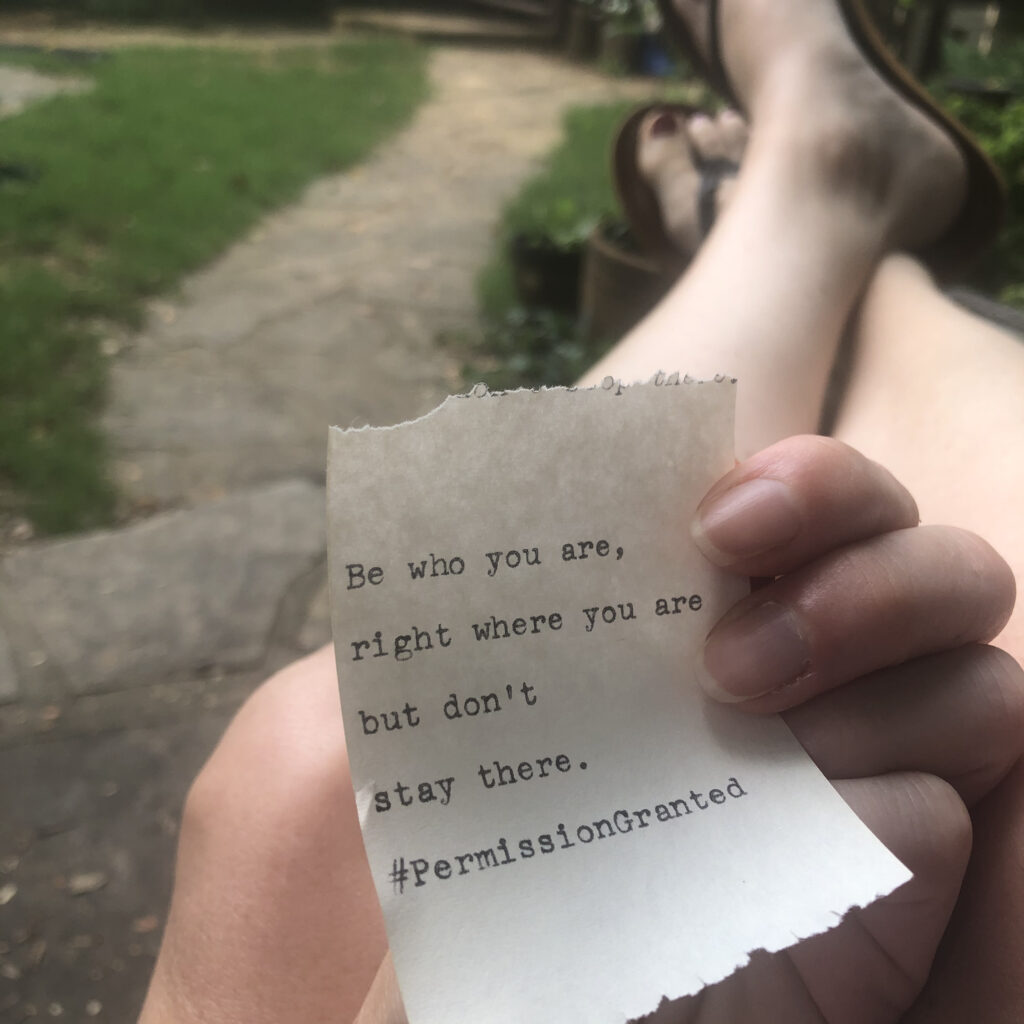 Be who you are,
right where you are
but don't
stay there.
#PermissionGranted